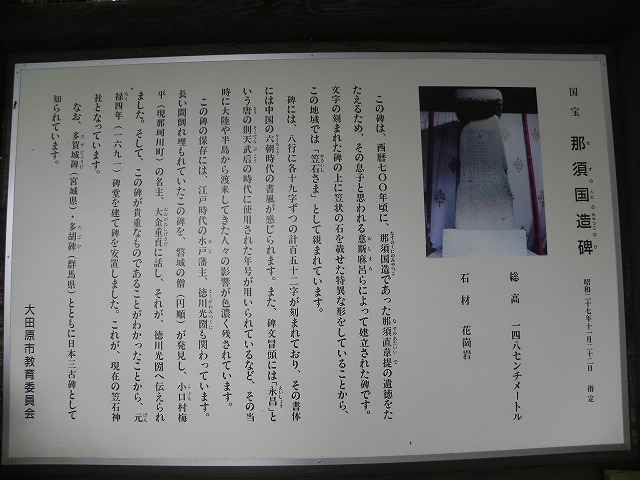 国宝 那須国造碑
なすのくにのみやつこのひ
昭和二十七年十一月二十二日 指定
総高 一四八センチメートル
石材 花崗岩
この碑は、西暦七〇〇年頃に、那須国造であった那須直韋提の遺徳をた
たえるため、その息子と思われる意斯麻呂らによって建立された碑です。
文字の刻まれた碑の上に笠状の石を載せた特異な形をしていることから、
この地域では「笠石さま」として親まれています。
碑には、八行に各十九字ずつの計百五十二字が刻まれており、その書体
には中国の六朝時代の書風が感じられます。また、碑文冒頭には「永昌」と
いう唐の則天武后の時代に使用された年号が用いられているなど、その当
時に大陸や半島から渡来してきた人々の影響が色濃く残されています。
この碑の保存には、江戸時代の水戸藩主、徳川光圀も関わっています。
長い間倒れ埋もれていたこの碑を、磐城の僧(円順)が発見し、小口村梅
平(現那珂川町)の名主、大金重貞に話し、それが、徳川光圀へ伝えられ
ました。そして、この碑が貴重なものであることがわかったことから、元
禄四年(一六九一)碑堂を建て碑を安置しました。これが、現在の笠石神
社となっています。
なお、多賀城碑(宮城県)・多胡碑(群馬県)とともに日本三古碑として
知られています。
大田原市教育委員会